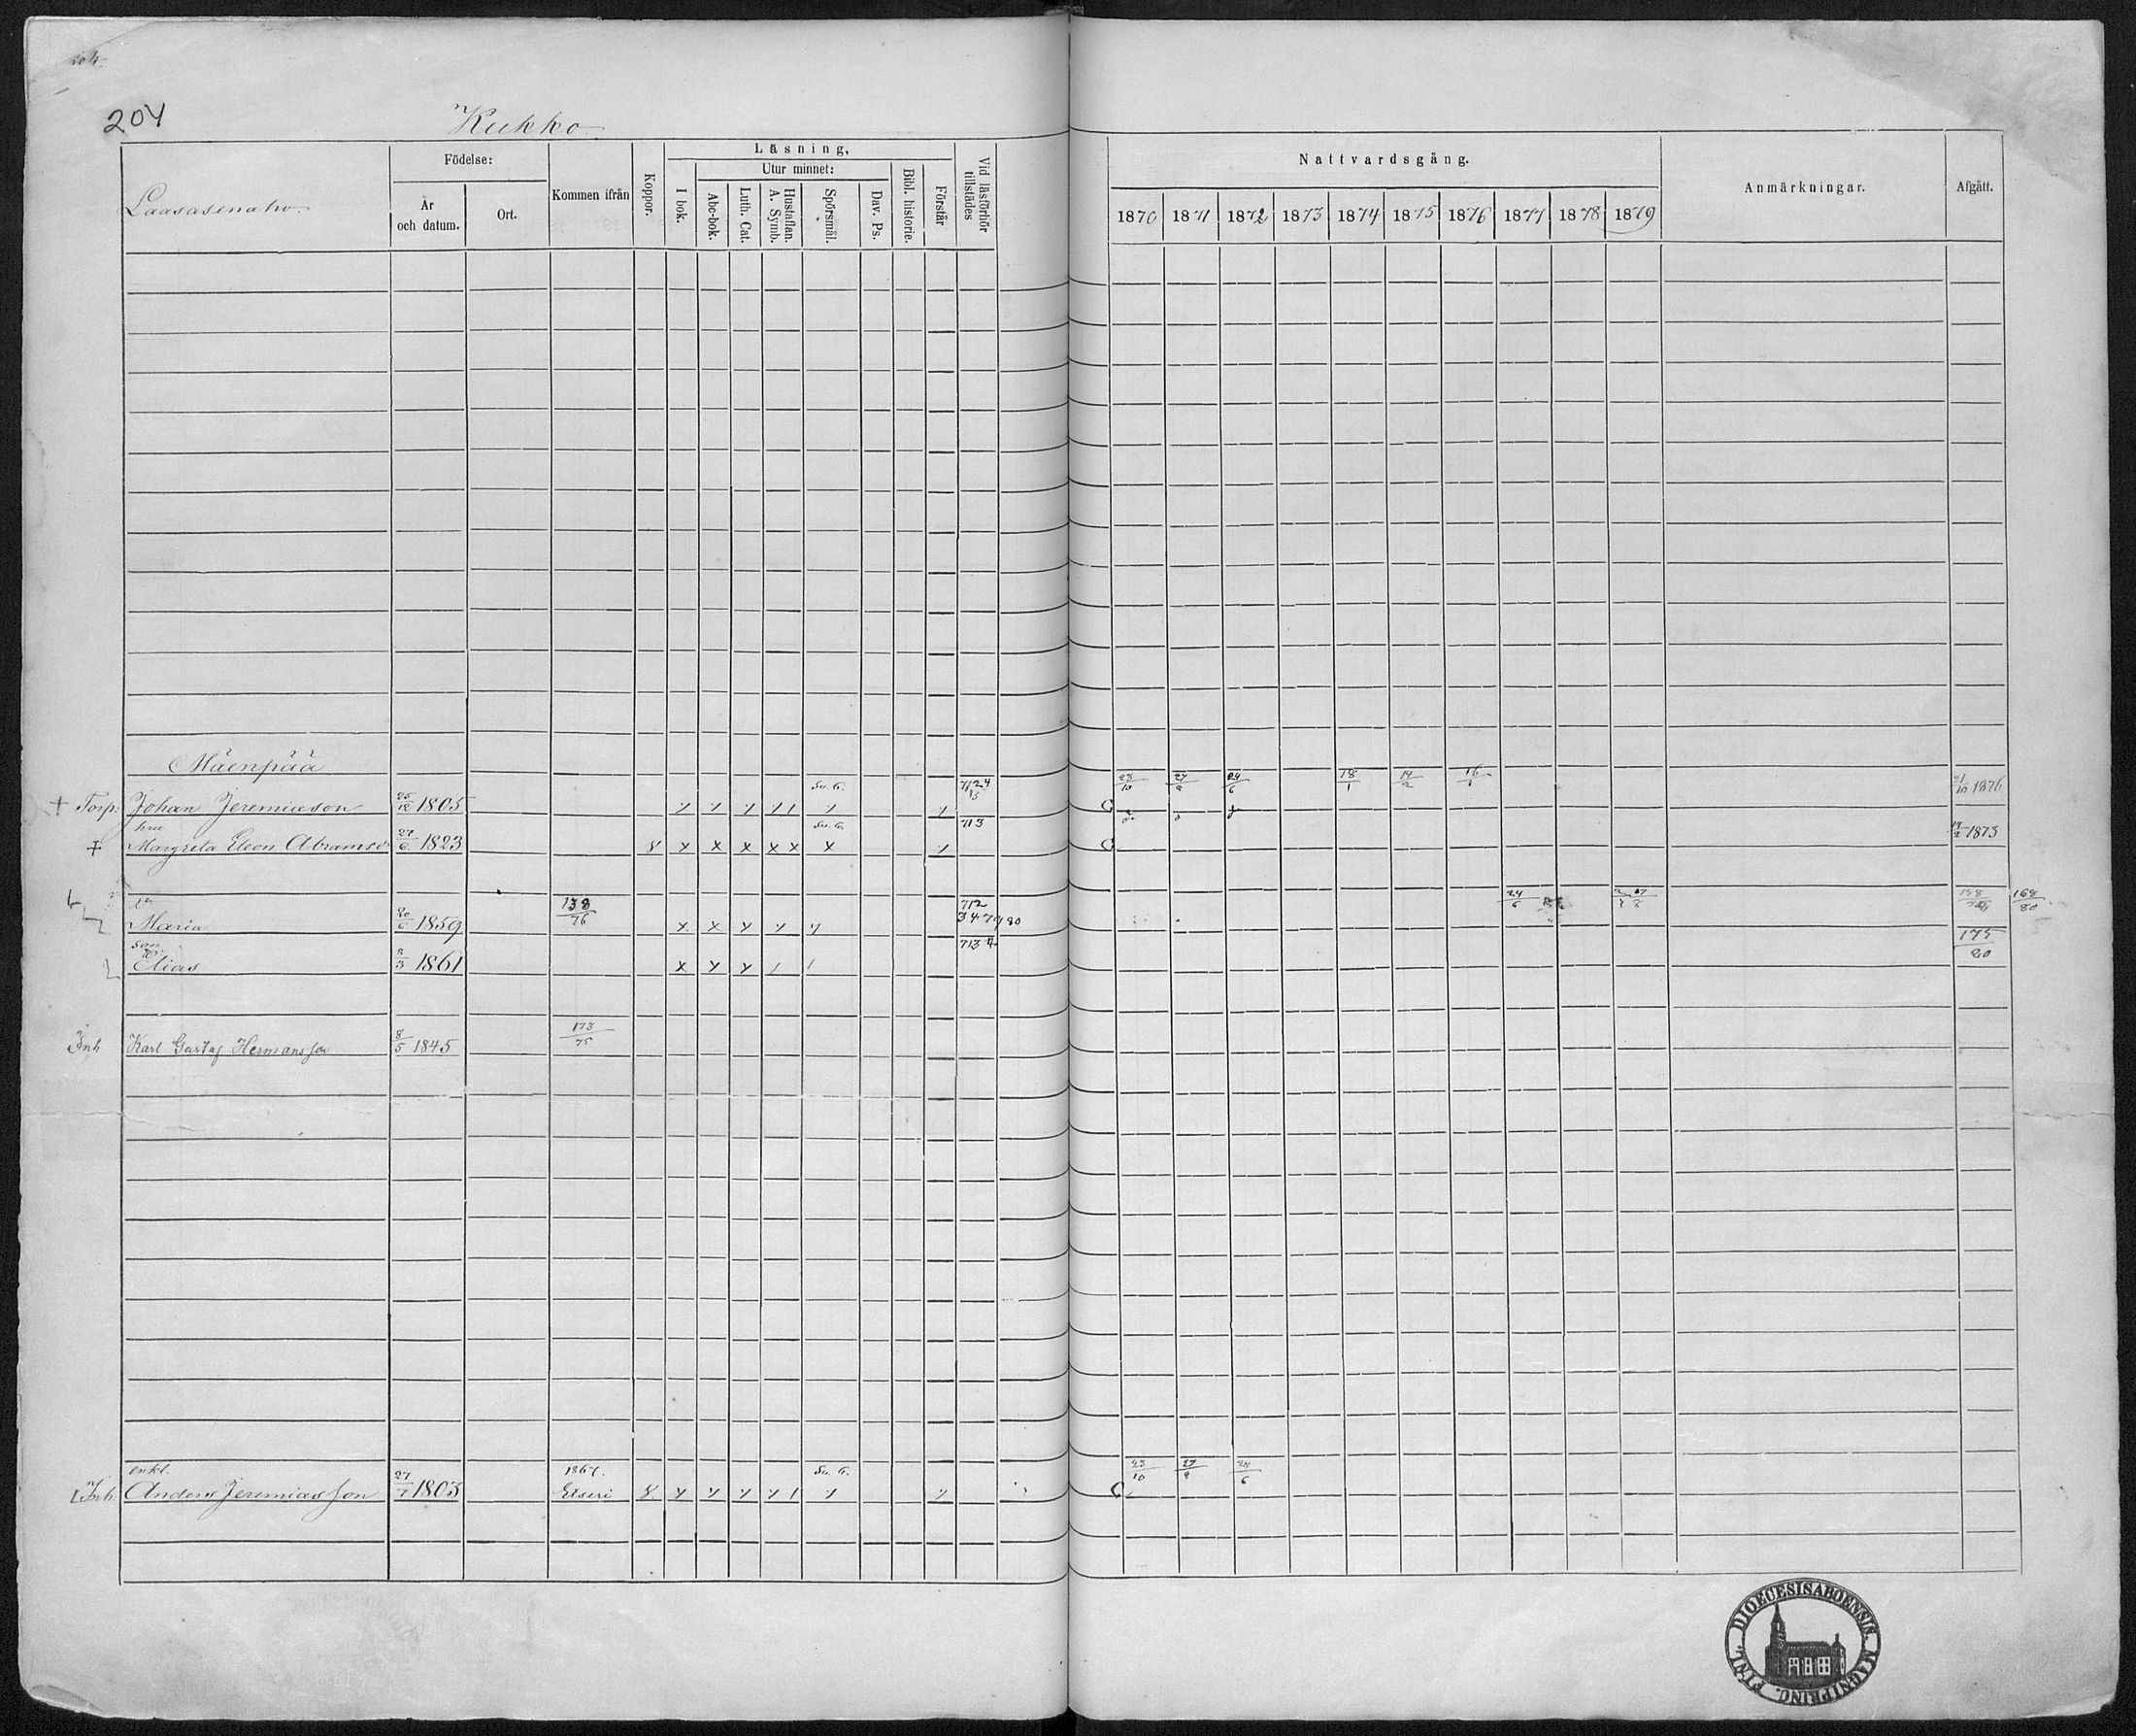 204
Kukko
Laasasenaho.
Födelse:
År och datum.
Ort.
Kommen ifrån
Koppor.
Läsning.
I bok.
Utur minnet:
Abc-bok.
Luth. Cat.
Hustaflan. A. Symb.
Spörsmål.
Dav. Ps.
Bibl. historie.
Förstår
Vid läsförhör tillstädes
Nattvardsgång.
1870 1871 1872 1873 1874 1875 1876 1877 1878 1879
Anmärkningar.
Afgått.
Mäenpää
+ Torp. Johan Jeremiason 25/12 1805 Sv. G. 23/10 27/9 24/6 18/1 14/2 16/1 21/10 1876
hru
+ Margreta Eleon Abramsdr 27/6 1823 Sv. G. 713 1873
Maria 20/6 1859 138/76 712 3 4 79 80 24/6 168/80
son
Elias 8/3 1861 713 175/80
Inh Karl Gustaf Hermansson 8/5 1845 173/75
enkl.
Inh Anders Jeremiasson 27/1 1803 1867. Etseri Sv. G. 23/10 27/9 24/6
FINL. DIOECESIS ABOENSIS. MAGNI PRINC.